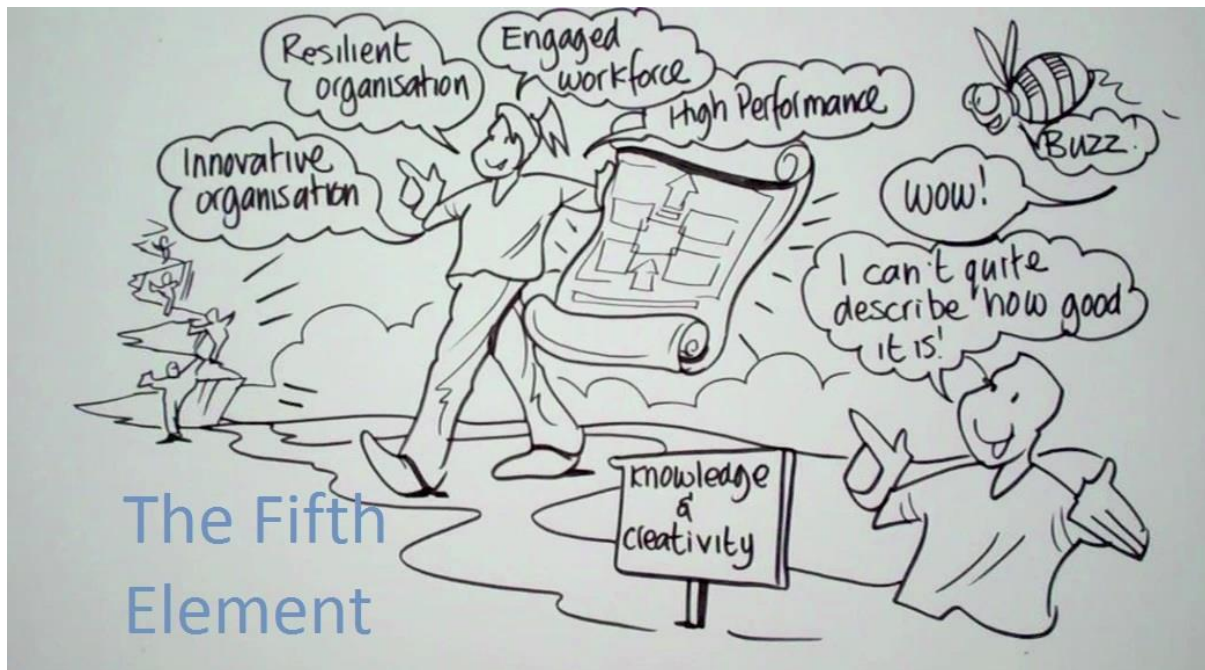 Resilient
organisation
Engaged
workforce
High Performance
Innovative
organisation
Buzz!
Wow!
I can't quite
describe how good
it is!
Knowledge
&
creativity
The Fifth
Element